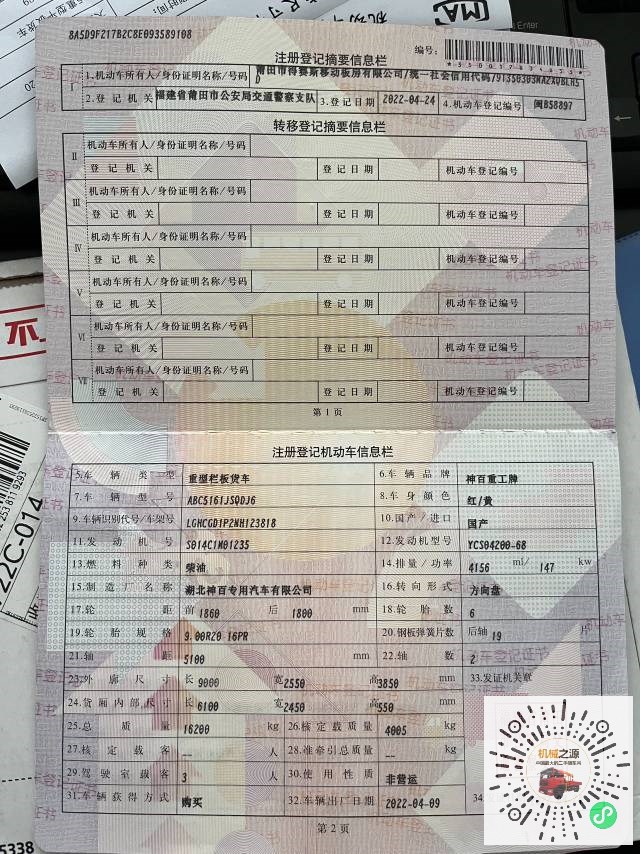 8A5D9F217B2C8E093589108
编号：
注册登记摘要信息栏
I
1.机动车所有人/身份证明名称/号码 莆田市得赛斯移动板房有限公司/统一社会信用代码/91350303MA2XQBLH5
D
2.登记机关 福建省莆田市公安局交通警察支队 3.登记日期 2022-04-24 4.机动车登记编号 闽B58897
转移登记摘要信息栏
II 机动车所有人/身份证明名称/号码
登记机关 登记日期 机动车登记编号
III 机动车所有人/身份证明名称/号码
登记机关 登记日期 机动车登记编号
IV 机动车所有人/身份证明名称/号码
登记机关 登记日期 机动车登记编号
V 机动车所有人/身份证明名称/号码
登记机关 登记日期 机动车登记编号
VI 机动车所有人/身份证明名称/号码
登记机关 登记日期 机动车登记编号
VII 机动车所有人/身份证明名称/号码
登记机关 登记日期 机动车登记编号
第1页
注册登记机动车信息栏
5.车辆类型 重型栏板货车 6.车辆品牌 神百重工牌
7.车辆型号 ABC5161JSQDJ6 8.车身颜色 红/黄
9.车辆识别代号/车架号 LGHCGD1P2NH123818 10.国产/进口 国产
11.发动机号 S014C1N01235 12.发动机型号 YCS04200-68
13.燃料种类 柴油 14.排量/功率 4156 ml/ 147 kw
15.制造厂名称 湖北神百专用汽车有限公司 16.转向形式 方向盘
17.轮距 前 1860 后 1800 mm 18.轮胎数 6
19.轮胎规格 9.00R20 16PR 20.钢板弹簧片数 后轴 19 片
21.轴距 5100 mm 22.轴数 2
23.外廓尺寸 长 9000 宽 2550 高 3850 mm 33.发证机关章
24.货厢内部尺寸 长 6100 宽 2450 高 550 mm
25.总质量 16200 kg 26.核定载质量 4005 kg
27.核定载客 -- 人 28.准牵引总质量 -- kg
29.驾驶室载客 3 人 30.使用性质 非营运
31.车辆获得方式 购买 32.车辆出厂日期 2022-04-09 34
第2页
机械之源
22C-014
5338